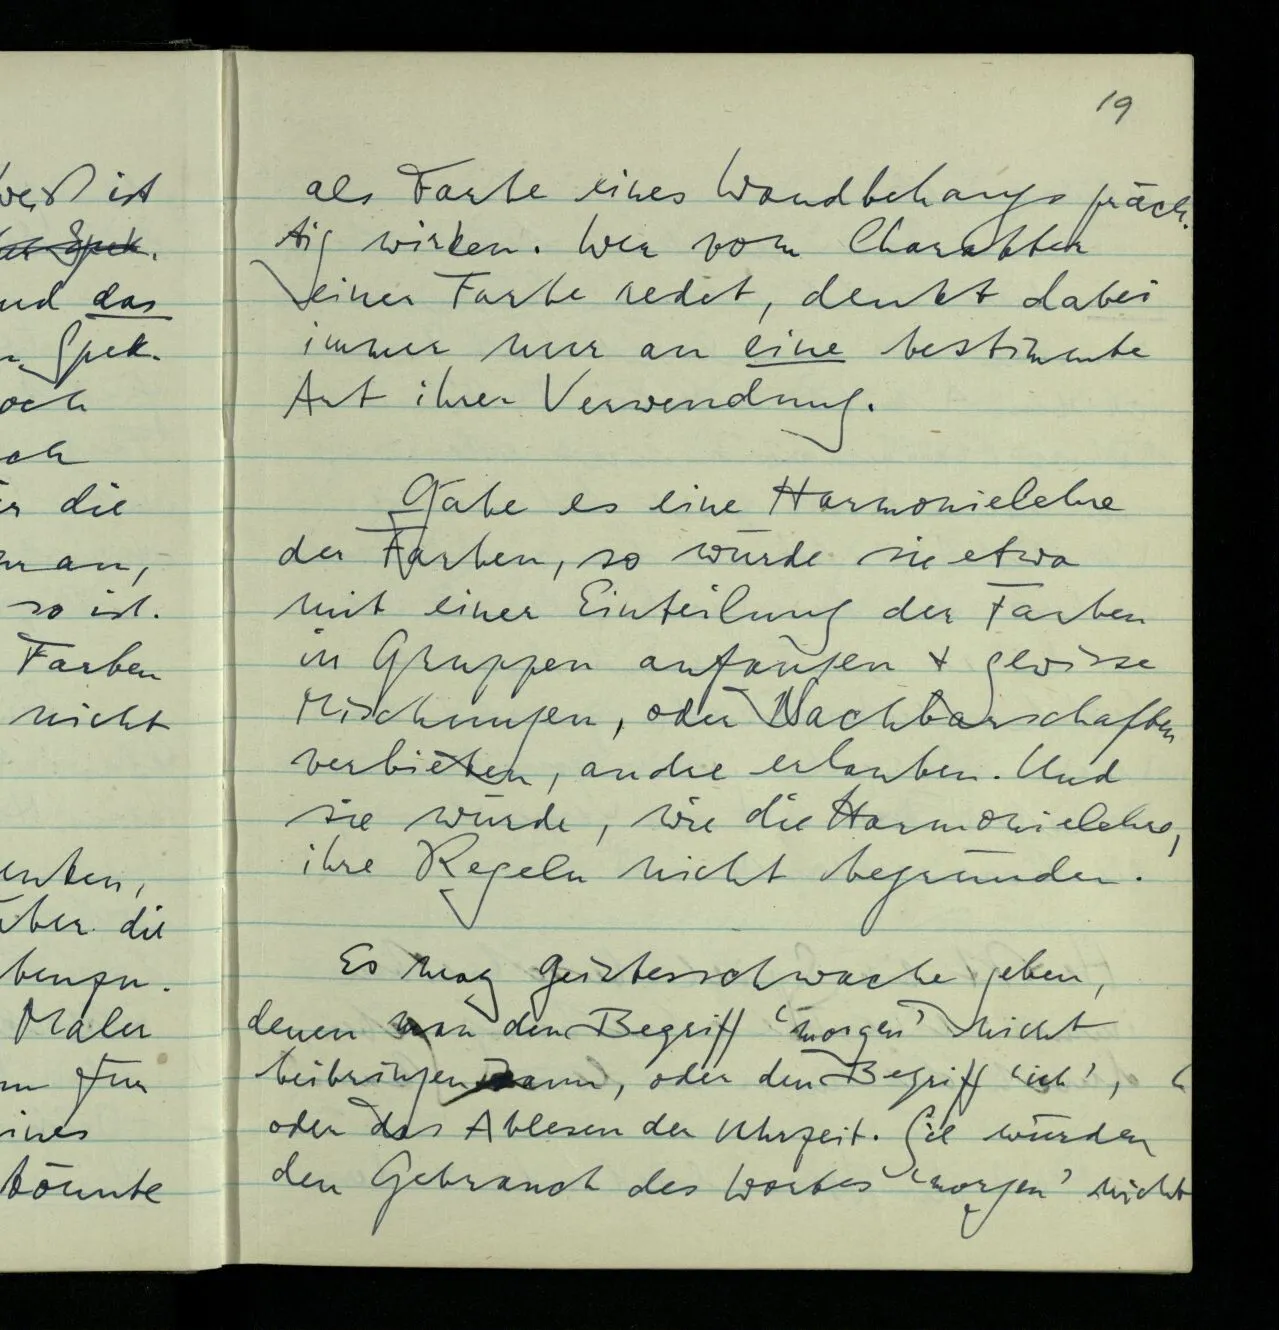 weiß ist
Spek-
und das
Spek-
och
ch
die
man,
so ist.
Farben
nicht
enken,
über die
benzu-
Maler
Für
ines
könnte
19
als Farbe eines Wandbehangs präch-
tig wirken. Wer vom Charakter
einer Farbe redet, denkt dabei
immer nur an eine bestimmte
Art ihrer Verwendung.
Gäbe es eine Harmonielehre
der Farben, so würde sie etwa
mit einer Einteilung der Farben
in Gruppen anfangen + gewisse
Mischungen, oder Nachbarschaften
verbieten, andre erlauben. Und
sie würde, wie die Harmonielehre,
ihre Regeln nicht begründen.
Es mag Geistesschwache geben,
denen man den Begriff ‘morgen’ nicht
beibringen kann, oder den Begriff ‘ich’,
oder das Ablesen der Uhrzeit. Sie würden
den Gebrauch des Wortes ‘morgen’ nicht